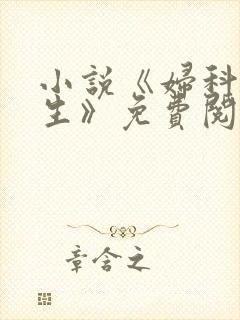 小說《婦科
生》免費閱
章含之